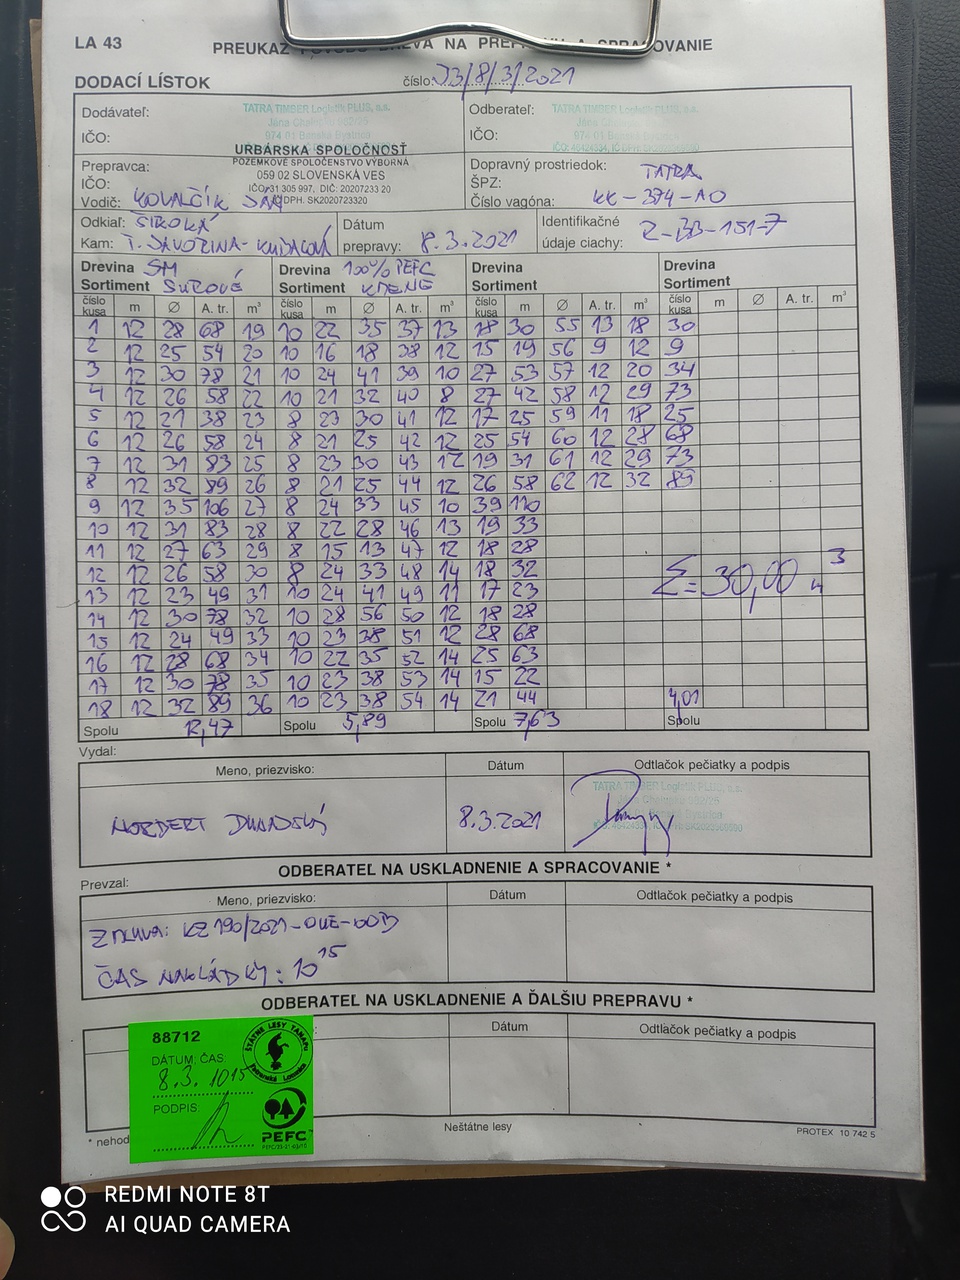 LA 43 PREUKAZ PÔVODU DREVA NA PREPRAVU A SPRACOVANIE
DODACÍ LÍSTOK číslo: D3/8/3/2021
Dodávateľ: TATRA TIMBER Logistik PLUS, a.s. Odberateľ: TATRA TIMBER Logistik PLUS, a.s.
974 01 Banská Bystrica
IČO: IČO:
URBÁRSKA SPOLOČNOSŤ
POZEMKOVÉ SPOLOČENSTVO VÝBORNÁ
Prepravca: 059 02 SLOVENSKÁ VES Dopravný prostriedok: TATRA
IČO: IČO: 31 305 997, DIČ: 20207233 20 ŠPZ:
Vodič: KOVALČÍK JÁN IČ DPH. SK2020723320 Číslo vagóna: KK-374-AO
Odkiaľ: ŠIROKÁ Dátum Identifikačné
Kam: T. JAVORINA- prepravy: 8.3.2021 údaje ciachy: Z-BB-151-7
Drevina SM Drevina 100% PEFC Drevina Drevina
Sortiment SUROVÉ Sortiment KMENE Sortiment Sortiment
číslo kusa m Ø A. tr. m³ číslo kusa m Ø A. tr. m³ číslo kusa m Ø A. tr. m³ číslo kusa m Ø A. tr. m³
1 12 28 68 19 10 22 35 37 13 18 30 55 13 18 30
2 12 25 54 20 10 16 18 38 12 15 19 56 9 12 9
3 12 30 78 21 10 24 41 39 10 27 53 57 12 20 34
4 12 26 58 22 10 21 32 40 8 27 42 58 12 29 73
5 12 21 38 23 8 23 30 41 12 17 25 59 11 18 25
6 12 26 58 24 8 21 25 42 12 25 54 60 12 28 68
7 12 31 83 25 8 23 30 43 12 19 31 61 12 29 73
8 12 32 89 26 8 21 25 44 12 26 58 62 12 32 89
9 12 35 106 27 8 24 33 45 10 39 110
10 12 31 83 28 8 22 28 46 13 19 33
11 12 27 63 29 8 15 13 47 12 18 28
12 12 26 58 30 8 24 33 48 14 18 32
13 12 23 49 31 10 24 41 49 11 17 23
Σ = 30,00 m³
14 12 30 78 32 10 28 56 50 12 18 28
15 12 24 49 33 10 23 38 51 12 28 68
16 12 28 68 34 10 22 35 52 14 25 63
17 12 30 78 35 10 23 38 53 14 15 22
18 12 32 89 36 10 23 38 54 14 21 44
Spolu 12,47 Spolu 5,89 Spolu 7,63 Spolu 4,01
Vydal:
Meno, priezvisko: Dátum Odtlačok pečiatky a podpis
TATRA TIMBER Logistik PLUS, a.s.
8.3.2021
ODBERATEĽ NA USKLADNENIE A SPRACOVANIE *
Prevzal:
Meno, priezvisko: Dátum Odtlačok pečiatky a podpis
ZMLUVA: KZ 190/2021-
ČAS NAKLÁDKY: 10¹⁵
ODBERATEĽ NA USKLADNENIE A ĎALŠIU PREPRAVU *
Dátum Odtlačok pečiatky a podpis
88712
ŠTÁTNE LESY TANAPU
Tatranská Lomnica
DÁTUM; ČAS:
8.3. 10¹⁵
PODPIS:
PEFC
* nehod Neštátne lesy PROTEX 10 742 5
REDMI NOTE 8T
AI QUAD CAMERA